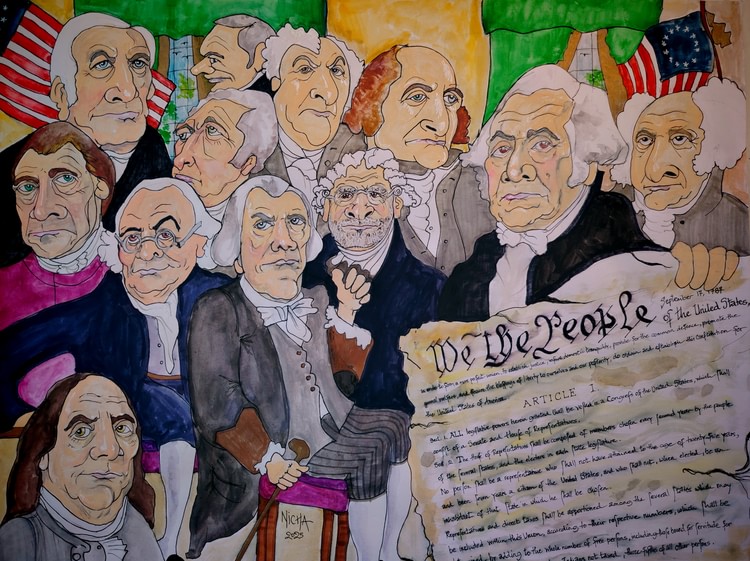 We the People
September 17, 1787
of the United States,
in order to form a more perfect union, to establish justice, insure domestic tranquility, provide for the common defence, promote the
and secure the blessings of liberty to ourselves and our posterity, do ordain and establish this Constitution for
the United States of America
ARTICLE I.
Sect. 1. ALL legislative powers herein granted shall be vested in a Congress of the United States, which shall
consist of a Senate and House of Representatives.
Sect. 2. The House of Representatives shall be composed of members chosen every second year by the people
of the several states, and the electors in each state legislature.
No person shall be a representative who shall not have attained to the age of twenty-five years,
and been seven years a citizen of the United States, and who shall not, when elected, be an
inhabitant of that state in which he shall be chosen.
Representatives and direct taxes shall be apportioned among the several states which may
be included within this Union, according to their respective numbers, which shall be
by adding to the whole number of free persons, including those bound for servitude for
Indians not taxed, three-fifths of all other persons.
NICHA
2025